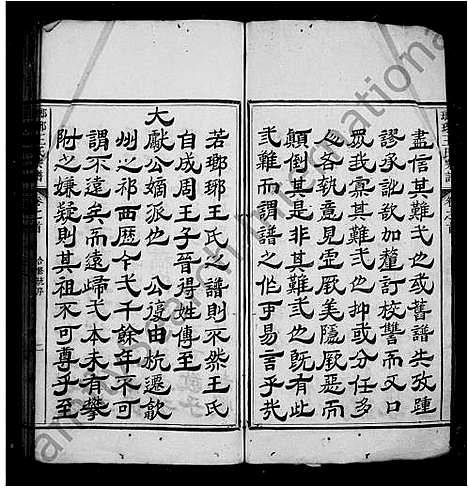 盡信其難弍也或舊譜失攷踵
謬承訛欲加釐訂校讐而又口
眾我寡其難弍也抑或分任多
人各執意見雲美隱厥惡而
顛倒其是非其難弍也旣有此
弍難而謂譜之作可易言乎哉
若瑯琊王氏之譜則不然王氏
自成周王子晉得姓傳至
大獻公嫡派也 公復由杭遷歙
州之祁西歷今弍千餘年不可
謂不遠矣而遠歸弍本未有攀
附之嫌疑則其祖不可尊乎至
瑯琊王氏宗譜
卷之首